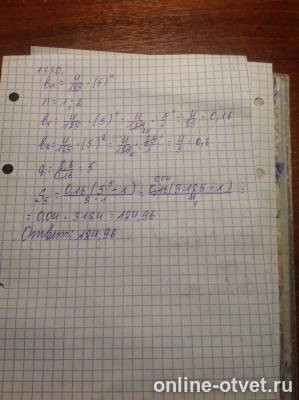 1330.
bn = 4/125 · (5)^n
n = 1; 2
b1 = 4/125 · (5)^1 = 4/125 · 5/1 = 4/25 = 0,16
b2 = 4/125 · (5)^2 = 4/125 · 25/1 = 4/5 = 0,8
q = 0,8/0,16 = 5
S5 = 0,16(5^5 - 1)/5 - 1 = 0,16(3125 - 1)/4 =
= 0,04 · 3124 = 124,96
Ответ: 124,96
online-otvet.ru